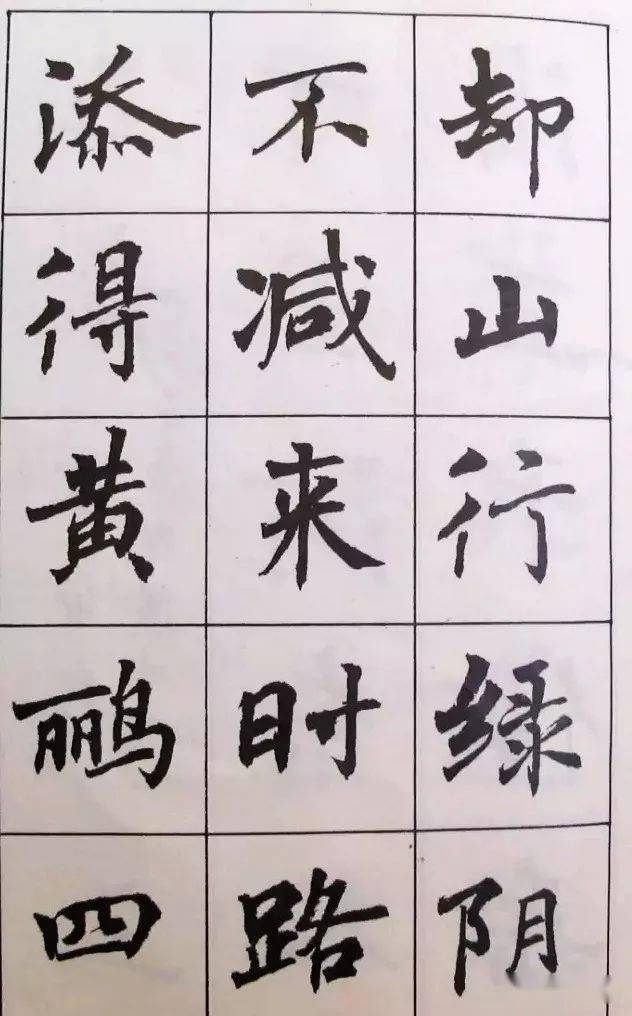 却山行绿阴
不减来时路
添得黄鹂四